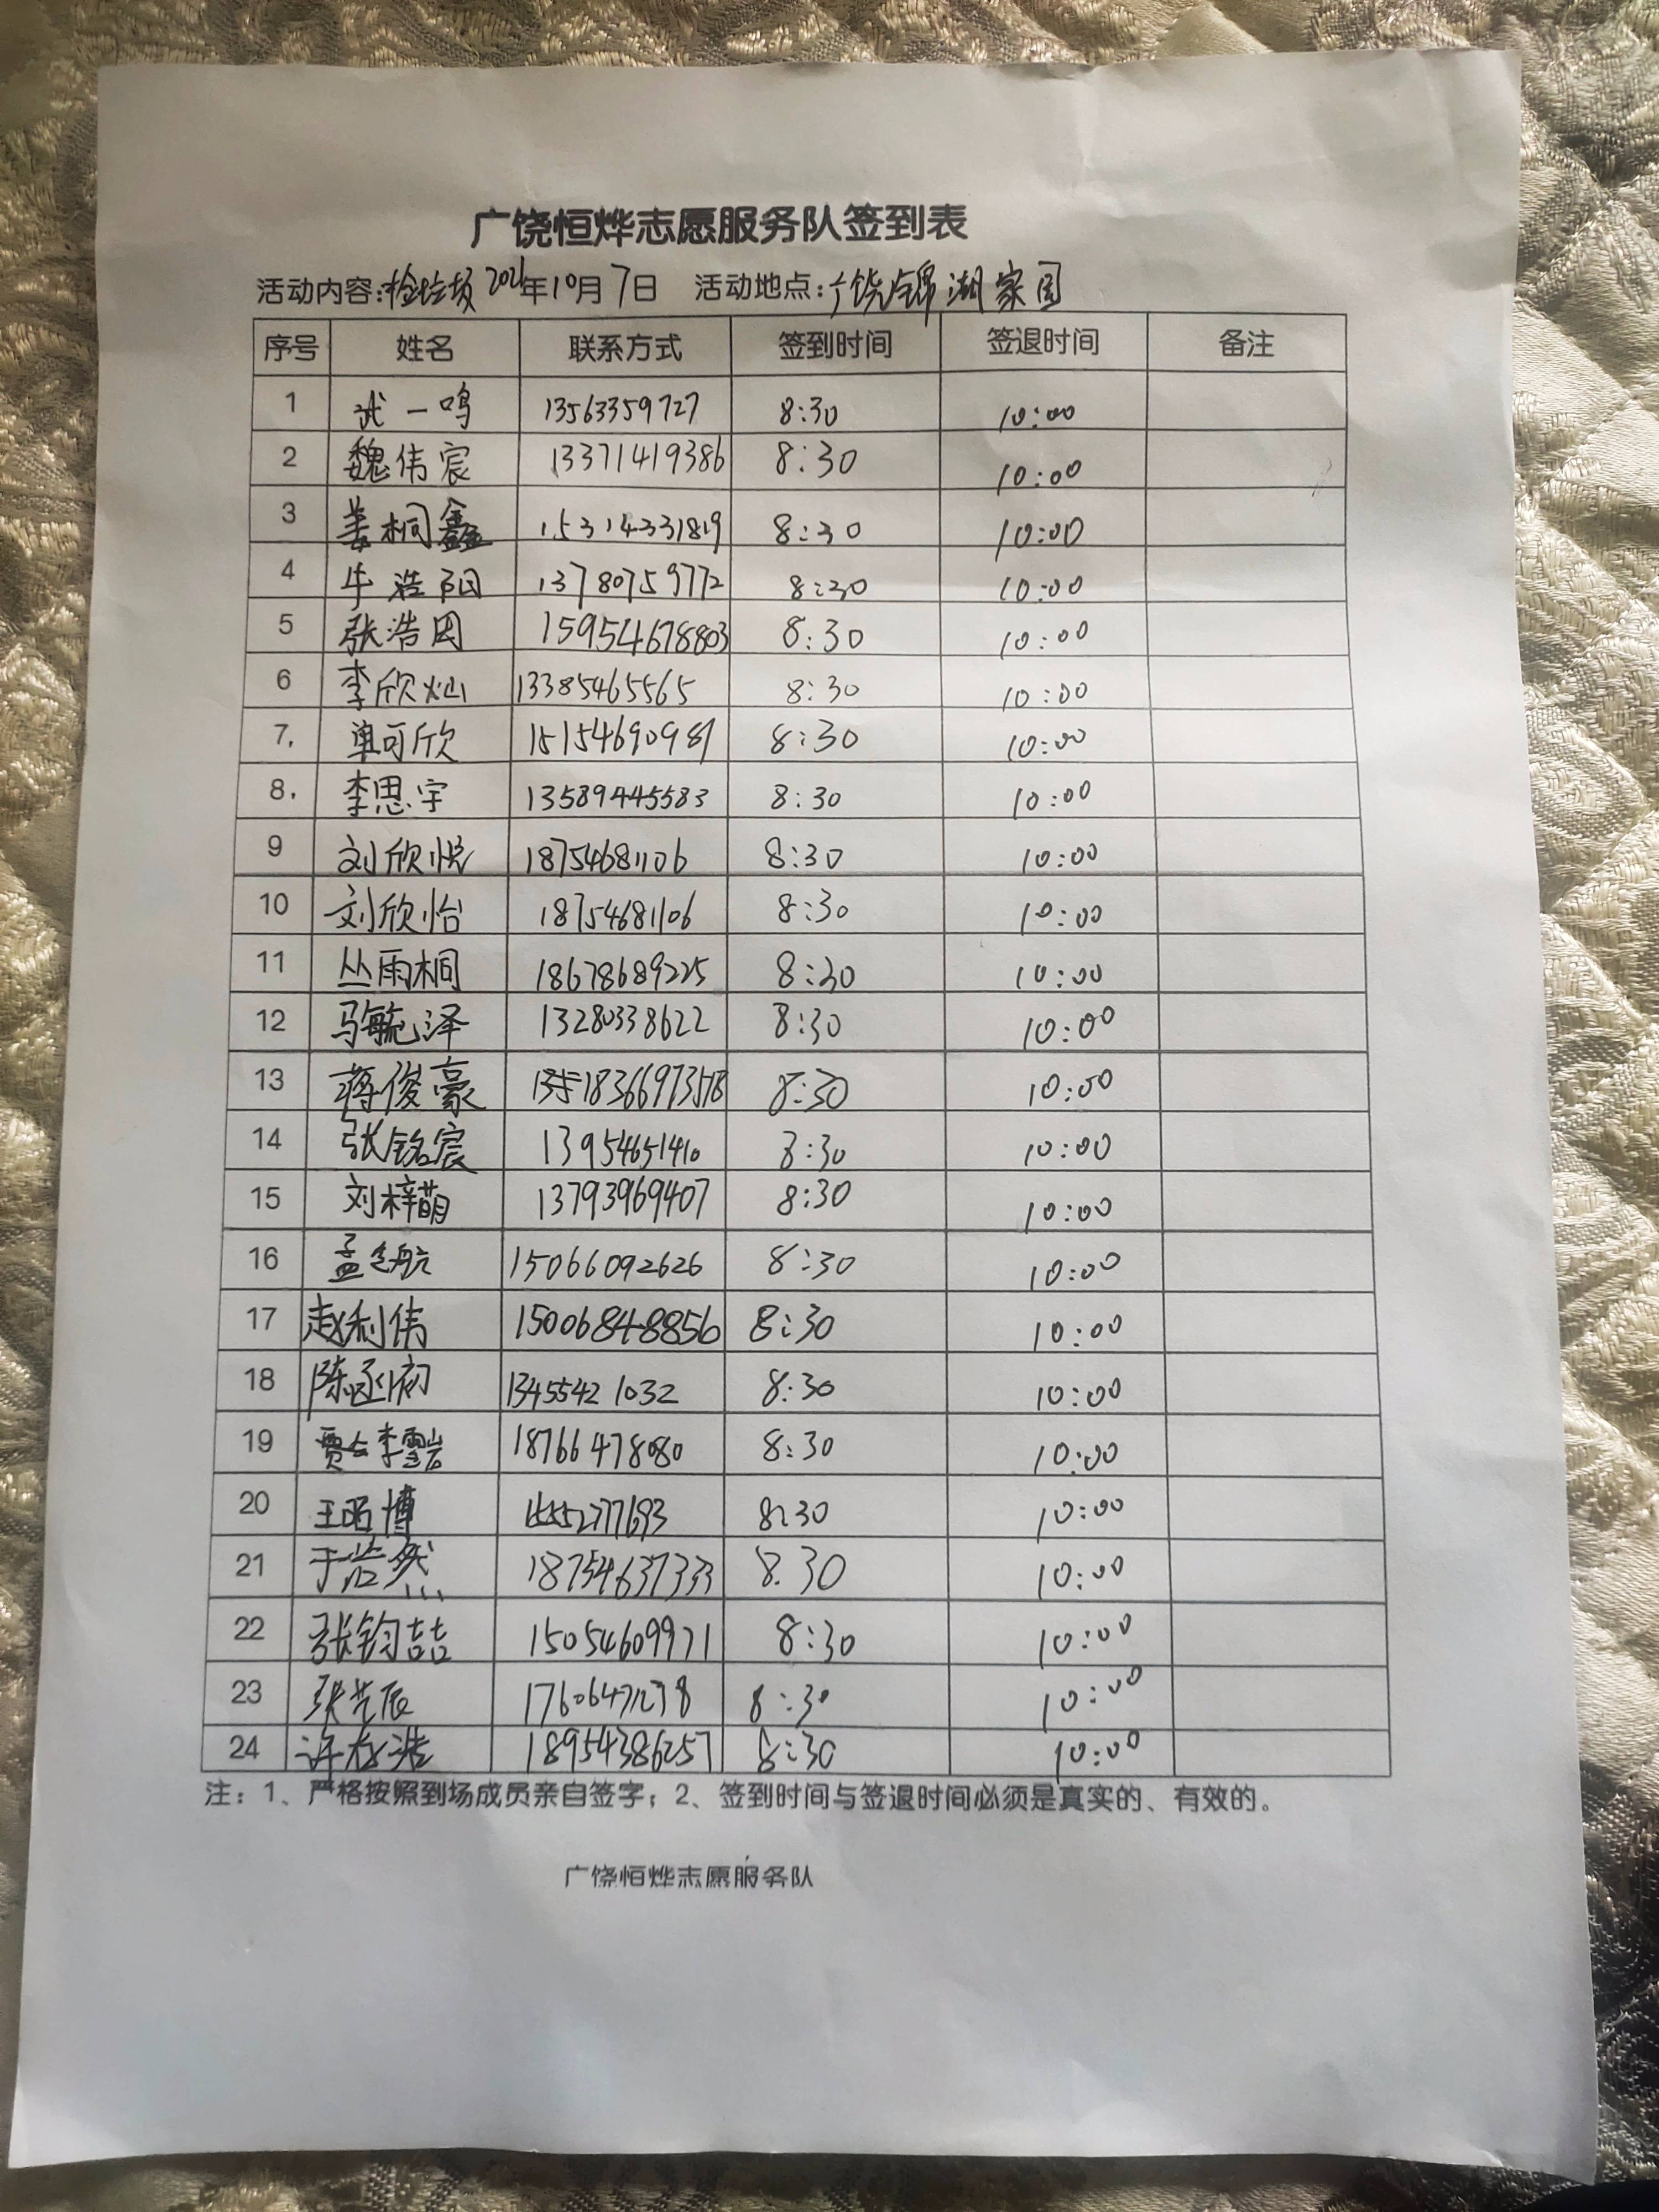 广饶恒烨志愿服务队签到表
活动内容:捡垃圾 2021年10月7日 活动地点:广饶锦湖家园
序号 姓名 联系方式 签到时间 签退时间 备注
1 武一鸣 13563359727 8:30 10:00
2 魏伟宸 13371419386 8:30 10:00
3 姜桐鑫 15314331819 8:30 10:00
4 牛浩阳 13780759772 8:30 10:00
5 张浩因 15954678803 8:30 10:00
6 李欣灿 13385465565 8:30 10:00
7. 单可欣 15154690981 8:30 10:00
8. 李思宇 13589445583 8:30 10:00
9 刘欣悦 18754681106 8:30 10:00
10 刘欣怡 18754681106 8:30 10:00
11 丛雨桐 18678689225 8:30 10:00
12 马毓泽 13280338622 8:30 10:00
13 蒋俊豪 18366973578 8:30 10:00
14 张铭宸 13954651410 8:30 10:00
15 刘梓萌 13793969407 8:30 10:00
16 孟 航 15066092626 8:30 10:00
17 赵利伟 15006848856 8:30 10:00
18 陈 初 13455421032 8:30 10:00
19 李 岩 18766478080 8:30 10:00
20 王昭博 8:30 10:00
21 于浩然 18754637333 8:30 10:00
22 张钧喆 15054609971 8:30 10:00
23 张艺辰 8:30 10:00
24 许 浩 18954386257 8:30 10:00
注：1、严格按照到场成员亲自签字；2、签到时间与签退时间必须是真实的、有效的。
广饶恒烨志愿服务队